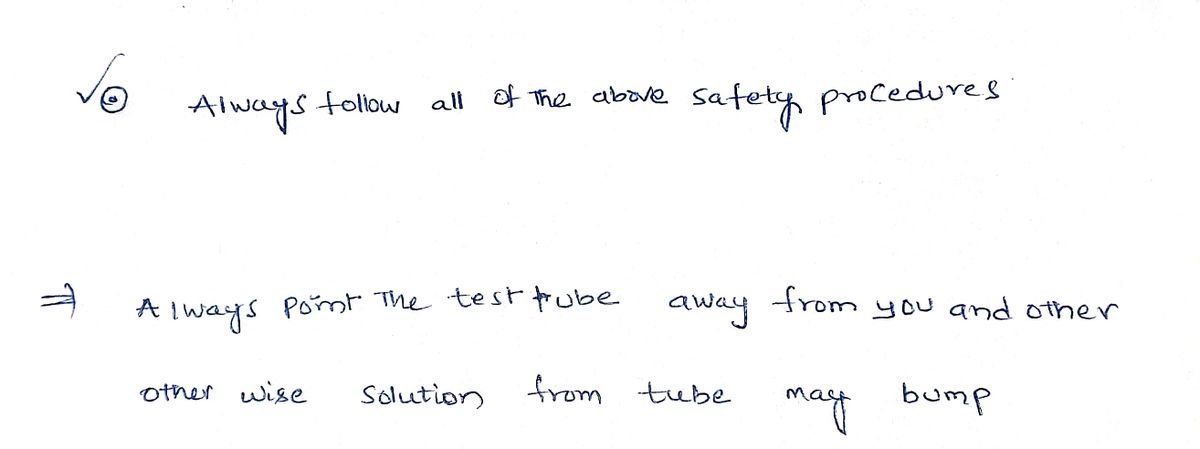 √⊙ Always follow all of The above safety procedures
⇒ Always point The test tube away from you and other
other wise solution from tube may bump